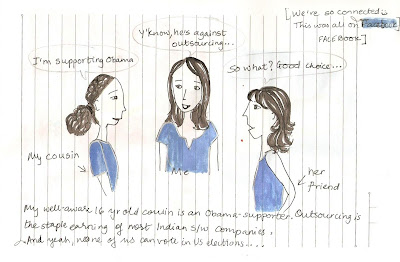 [We're so connected
This was all on
FACEBOOK]
Y'know, he's against
outsourcing...
I'm supporting Obama
So what? Good choice...
My cousin
Me
her
friend
My well-aware 16 yr old cousin is an Obama-supporter. Outsourcing is
the staple earning of most Indian S/w companies.
And yeah, none of us can vote in US elections....